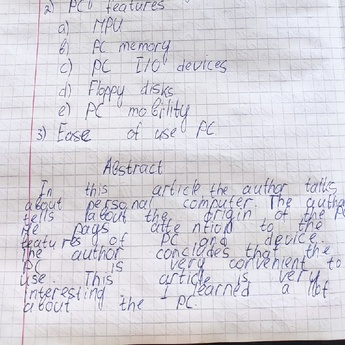 2) PC features
a) MPU
b) PC memory
c) PC I/O devices
d) Floppy disks
e) PC mobility
3) Ease of use PC
Abstract
In this article the author talks
about personal computer. The author
tells about the origin of the PC
He pays attention to the
features of PC and device.
The author concludes that the
PC is very convenient to
use. This article is very
interesting I learned a lot
about the PC